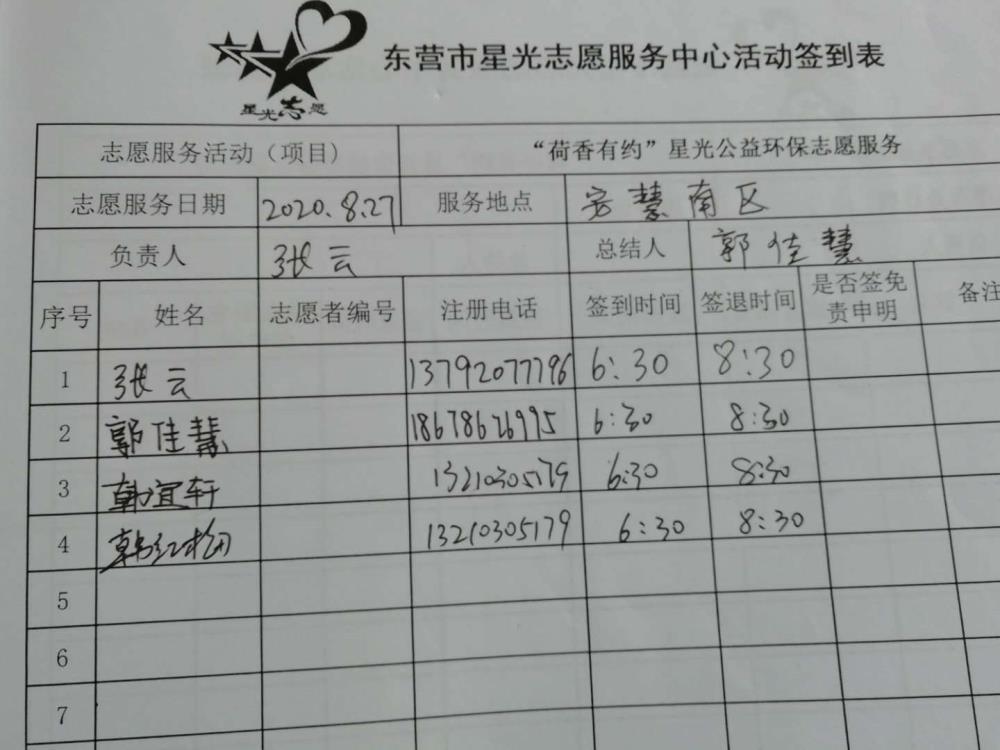 东营市星光志愿服务中心活动签到表
星光志愿
志愿服务活动（项目） “荷香有约”星光公益环保志愿服务
志愿服务日期 2020.8.27 服务地点 安慧南区
负责人 张云 总结人 郭佳慧
序号 姓名 志愿者编号 注册电话 签到时间 签退时间 是否签免责申明 备注
1 张云 13792077796 6:30 8:30
2 郭佳慧 18678626995 6:30 8:30
3 韩宜轩 13210305179 6:30 8:30
4 韩红松 13210305179 6:30 8:30
5
6
7